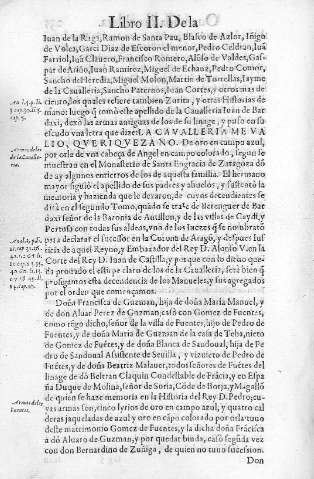 Libro II. De la
Iuan de la Raga, Ramon de Santa Pau, Blasco de Azlor, Iñigo
de Volea, Garci Diaz de Escoron el menor, Pedro Celdran, Iuã
Farriol, Iuã Cluero, Francisco Romero, Alõso de Valdes, Gas-
par de Ariño, Iuan Ramirez, Miguel de Echauz, Pedro Comor,
Sancho de Heredia, Miguel Molon, Martin de Torrellas, Iayme
de la Cavalleria, Sancho Paternos, Ioan Cortes, y otros mas de
ciento, los quales refiere tambien Zurita, y otras Historias de
mano: luego q̃ tomò este apellido de la Caualleria Iuan de Bar
daxi, dexò las armas antiguas de los de su linage, y puso en su
escudo vna letra que dize: LA CAVALLERIA ME VA
LIO, QVERIQVEZANO. De oro en campo azul, y
por orle vna cabeça de Angel en campo colorado, segun se
muestra en el Monasterio de Santa Engracia de Zaragoza dõ
de ay algunos entierros de los de aquesta familia. El hermano
mayor siguiò el apellido de sus padres y abuelos, y sustentò la
memoria y hazienda que le dexaron, de cuyos decendientes se
dirà en el segundo Tomo, quãdo se trate de Berenguer de Bar
daxi señor de la Baronia de Antillon, y de las villas de Oydi, y
Pertosa con todas sus aldeas, vno de los Iuezes q̃ se nonbrarõ
para declarar el sucessor en la Corona de Aragõ, y despues Ius
ticia de aquel Reyno, y Embaxador del Rey D. Alonso V. en la
Corte del Rey D. Iuan de Castilla, y porque con lo dicho que-
da prouado el estirpe claro de los de la Caualleria, serà biẽ q̃
prosigamos esta decendencia de los Manueles, y sus agregados
por el orden que començamos.
Doña Francisca de Guzman, hija de doña Maria Manuel, y
de don Aluar Perez de Guzman, casò con Gomez de Fuentes,
como tẽgo dicho, señor de la villa de Fuentes, hijo de Pedro de
Fuentes, y de doña Maria de Guzman de la casa de Teba, nieto
de Gomez de Fuẽtes, y de doña Blanca de Sandoual, hija de Pe
dro de Sandoual Assistente de Seuilla, y viznieto de Pedro de
Fuẽtes, y de doña Beatriz Maluaer, todos señores de Fuẽtes del
linage de dõ Beltran Claquin Condestable de Frãcia, y en Espa
ña Duque de Molina, señor de Soria, Cõde de Borja, y Magallõ
de quien se haze memoria en la Historia del Rey D. Pedro; cu-
yas armas son, cinco lyrios de oro en campo azul, y quatro cal
deras jaqueladas de azul y oro en cãpo colorado por orla: tuuo
deste matrimonio Gomez de Fuentes, y la dicha doña Frãcisca
à dõ Aluaro de Guzman, y por quedar biuda, casò segũda vez
con don Bernardino de Zuñiga, de quien no tuuo sucession.
Don